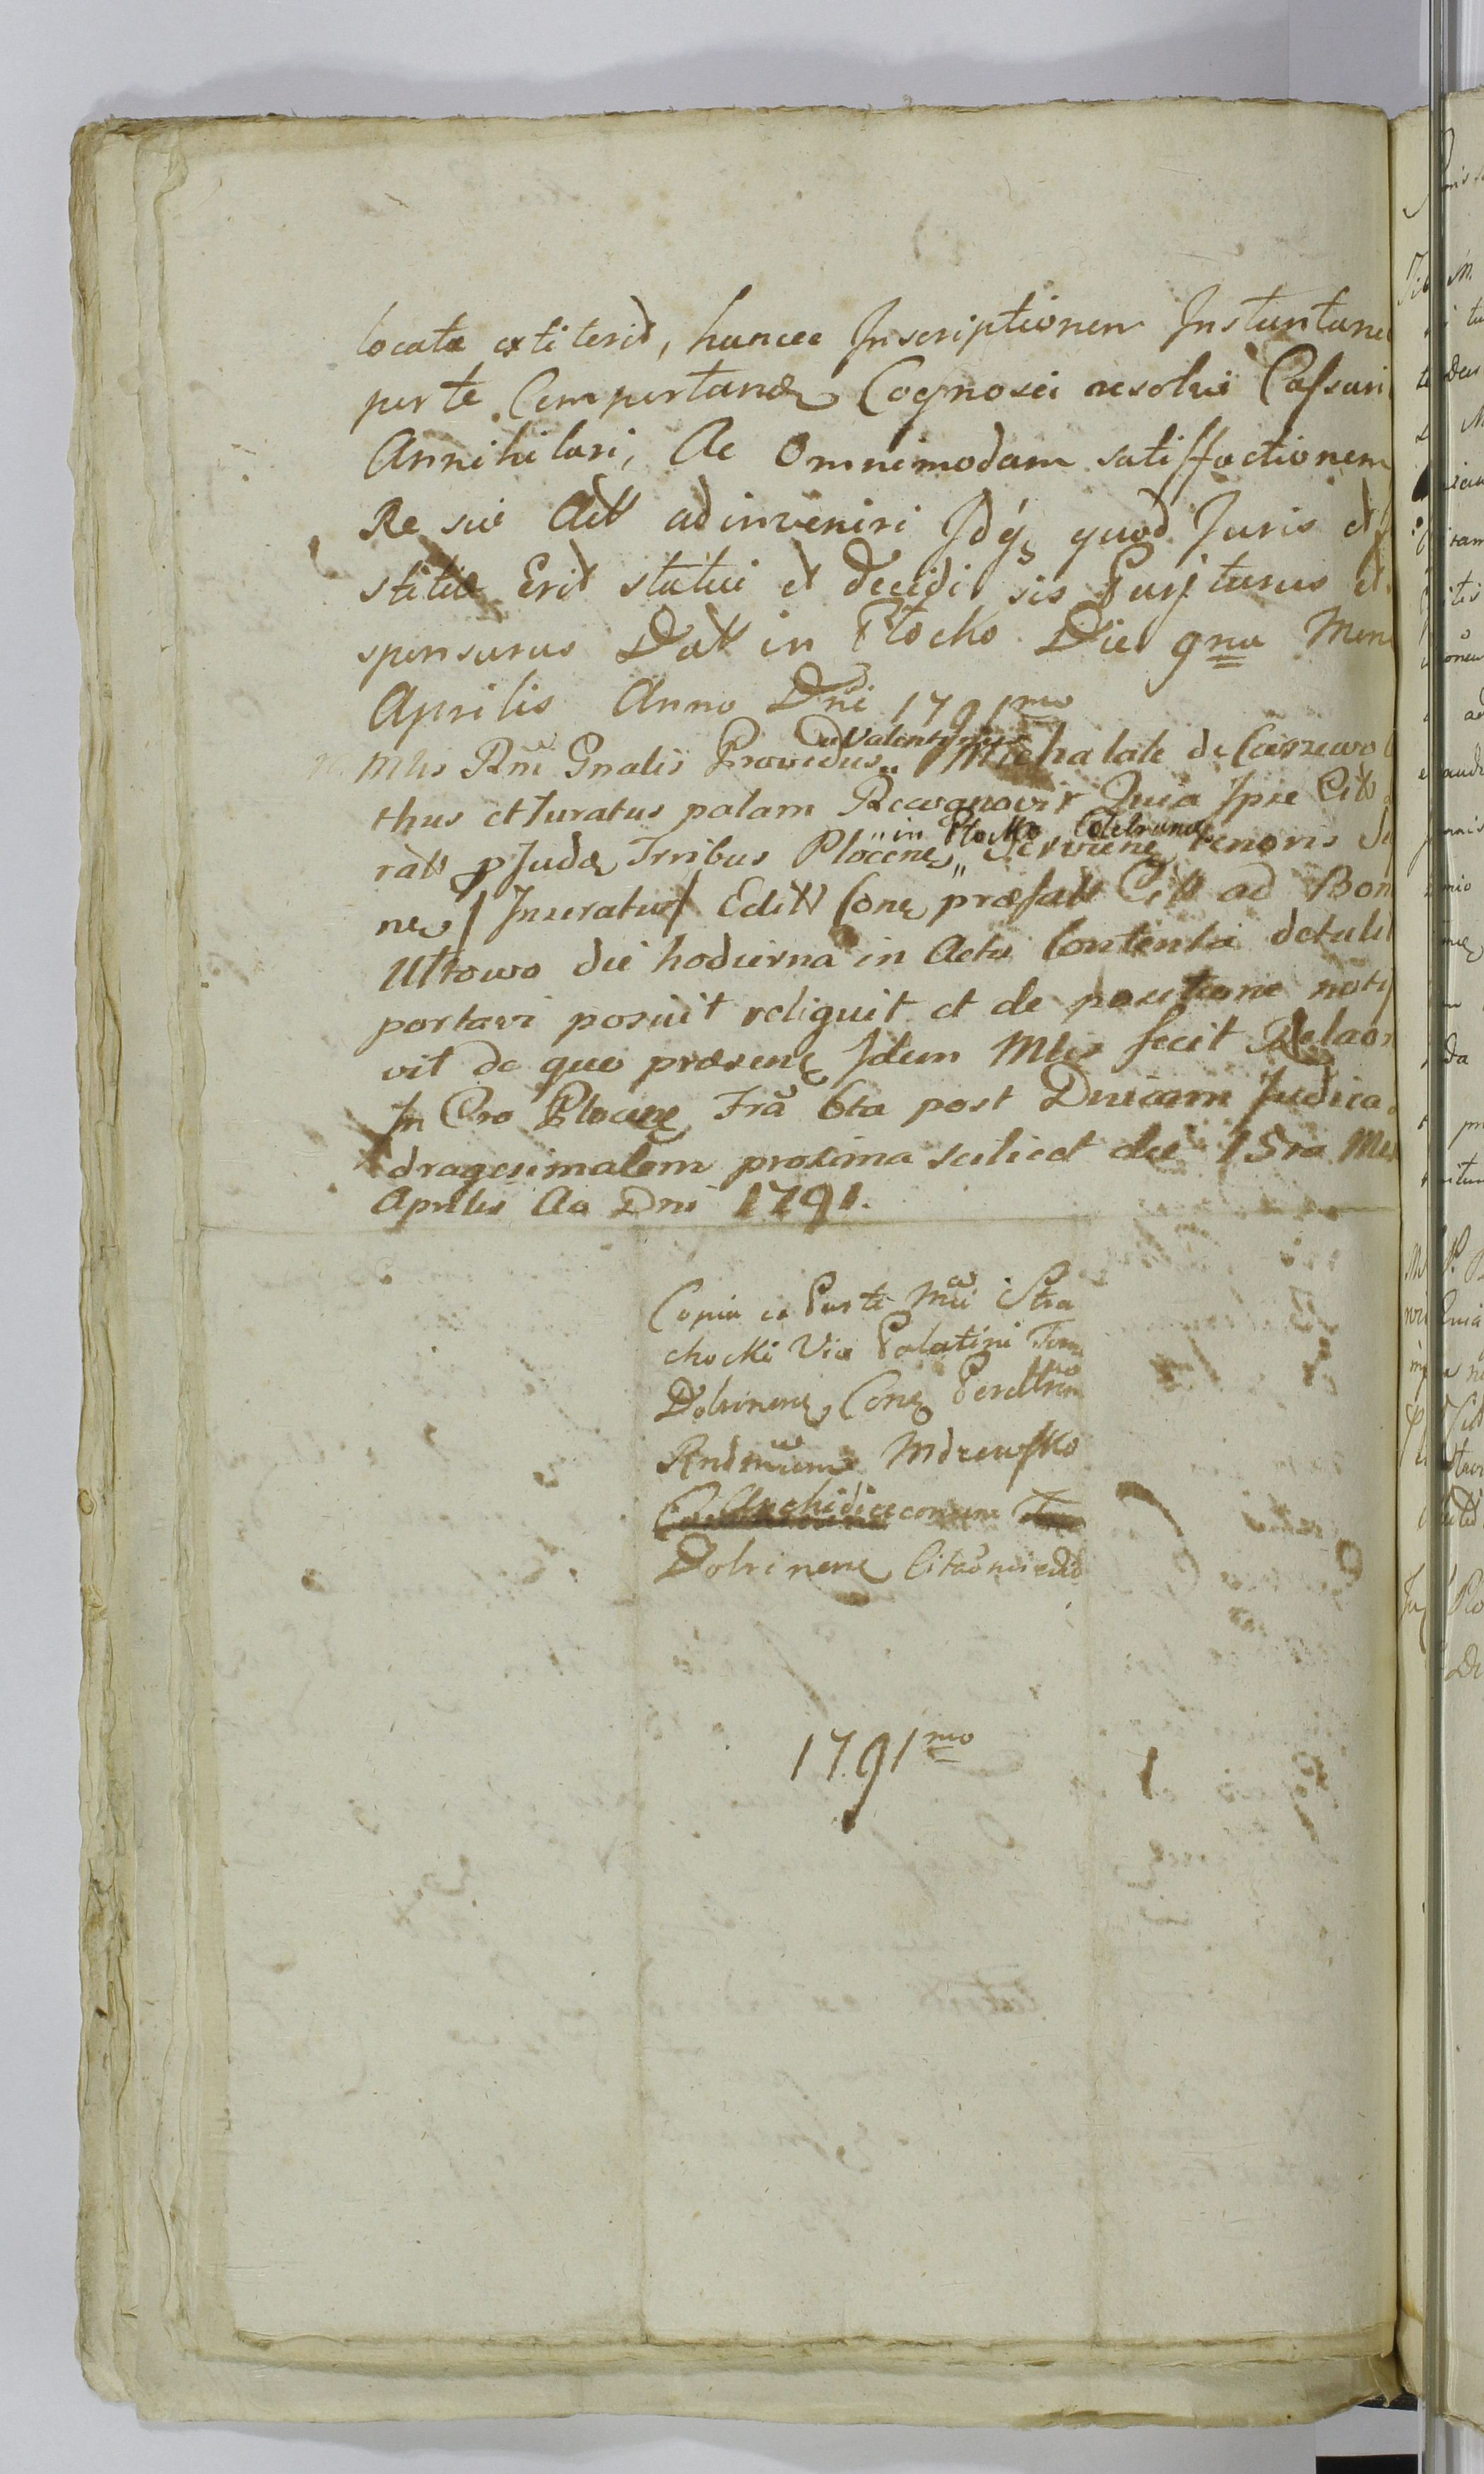 locata extiterit, huncce Inscriptionem Instantane
per te Comportand Cognosci resolvi Cassari
Annihilari, Ac Omnimodam satisfactionem
Re sui Actt adinveniri Idq, quod Juris et
stitiæ Erit statui et decidi sis Parjturus et
sponsurus Datt in Płocko Die 9na Men
Aprilis Anno Dni 1791mo
Mtis Rni Gnalis Providus Valentinus Michalak de Ciarzewo
thus et Juratus palam Recognovit Quia Ipse Citt
ratt p Juda Tribus Plocen in Płocko Celebrand tenoris
ne / Inuratus / Editt Cone præfatt Citt ad Bon
Ułtowo die hodierna in Actu Contenta detulit
portavi posuit reliquit et de positione noty
vit de quo præsens Idem Mtis fecit Relaon
In Cro Plocen Fra 6ta post Dnicam Judica
dragesimalem proxima scilicet die 15ta Me
Aprilis Ao Dni 1791.
Copia ex Parte Mci Stra
chocki Vice Palatini Terræ
Dobrinens, Cone Perelltrem
Rndmum Mdzewsko
Archidiaconum
Dobrinens Citaonis edit
1791mo